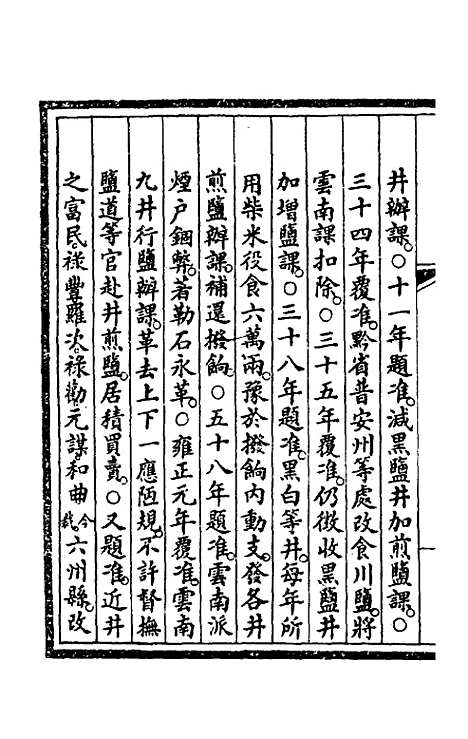 井辦課。○十一年題准。減黑鹽井加煎鹽課。○
三十四年覆准。黔省普安州等處改食川鹽。將
雲南課扣除。○三十五年覆准。仍徵收黑鹽井
加增鹽課。○三十八年題准。黑白等井。每年所
用柴米役食六萬兩。豫於撥餉內動支。發各井
煎鹽辦課。補還撥餉。○五十八年題准。雲南派
煙户錮弊。著勒石永革。○雍正元年覆准。雲南
九井行鹽辦課。革去上下一應陋規。不許督撫
鹽道等官赴井煎鹽。居積買賣。○又題准。近井
之富民。祿豐。羅次。祿勸。元謀。和曲今裁六州縣。改